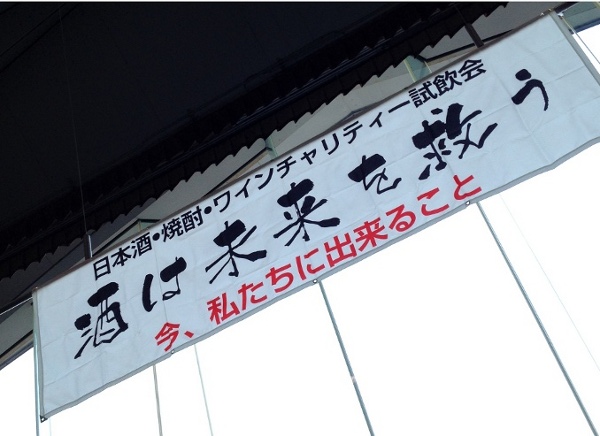 日本酒・焼酎・ワインチャリティー試飲会
酒は未来を救う
今、私たちに出来ること